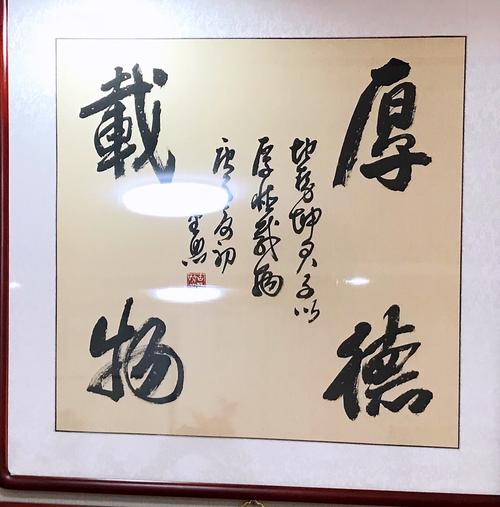 厚德
載物
地勢坤君子以
厚德載物
初